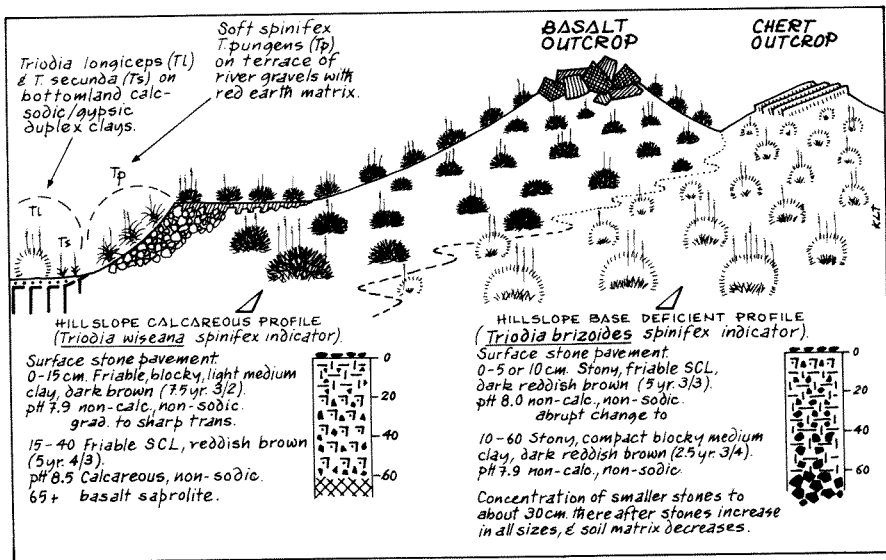 Triodia longiceps (Tl)
& T. secunda (Ts) on
bottomland calc-
sodic/gypsic
duplex clays.
Soft spinifex
T. pungens (Tp)
on terrace of
river gravels with
red earth matrix.
BASALT
OUTCROP
CHERT
OUTCROP
Tp
Tl
Ts
KLT
HILLSLOPE CALCAREOUS PROFILE
(Triodia wiseana spinifex indicator).
Surface stone pavement.
0-15cm. Friable, blocky, light medium
clay, dark brown (7.5yr. 3/2).
pH 7.9 non-calc., non-sodic.
grad. to sharp trans.
15-40 Friable SCL, reddish brown
(5yr. 4/3).
pH 8.5 Calcareous, non-sodic.
65+ basalt saprolite.
0
20
40
60
HILLSLOPE BASE DEFICIENT PROFILE
(Triodia brizoides spinifex indicator).
Surface stone pavement.
0-5 or 10cm. Stony, friable SCL,
dark reddish brown (5yr. 3/3).
pH 8.0 non-calc., non-sodic.
abrupt change to
10-60 Stony, compact blocky medium
clay, dark reddish brown (2.5yr. 3/4).
pH 7.9 non-calc., non-sodic.
Concentration of smaller stones to
about 30cm. thereafter stones increase
in all sizes, & soil matrix decreases.
0
20
40
60